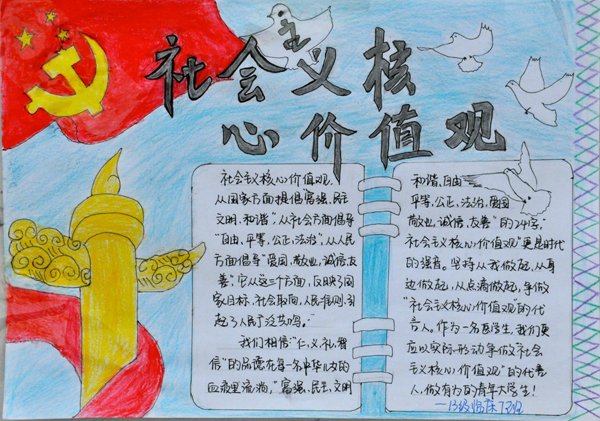 社会主义核
心价值观
社会主义核心价值观,
从国家方面提倡富强、民主
文明、和谐",从社会方面倡导
"自由、平等、公正、法治",从人民
方面倡导"爱国、敬业、诚信、友
善"。它从这三个方面,反映了国
家目标、社会取向、人民准则,引
起了人民广泛共鸣。"
我们相信"仁、义、礼、智
信"的品德在每一名中华儿女的
血液里流淌,"富强、民主、文明
和谐、自由
平等、公正、法治、爱国
敬业、诚信、友善"的24字,
"社会主义核心价值观"更是时代
的强音。坚持从我做起,从身
边做起,从点滴做起,争做
"社会主义核心价值观"的代
言人。作为一名医学生,我们更
应以实际形动争做"社会
主义核心价值观"的代言
人,做有为的青年大学生!